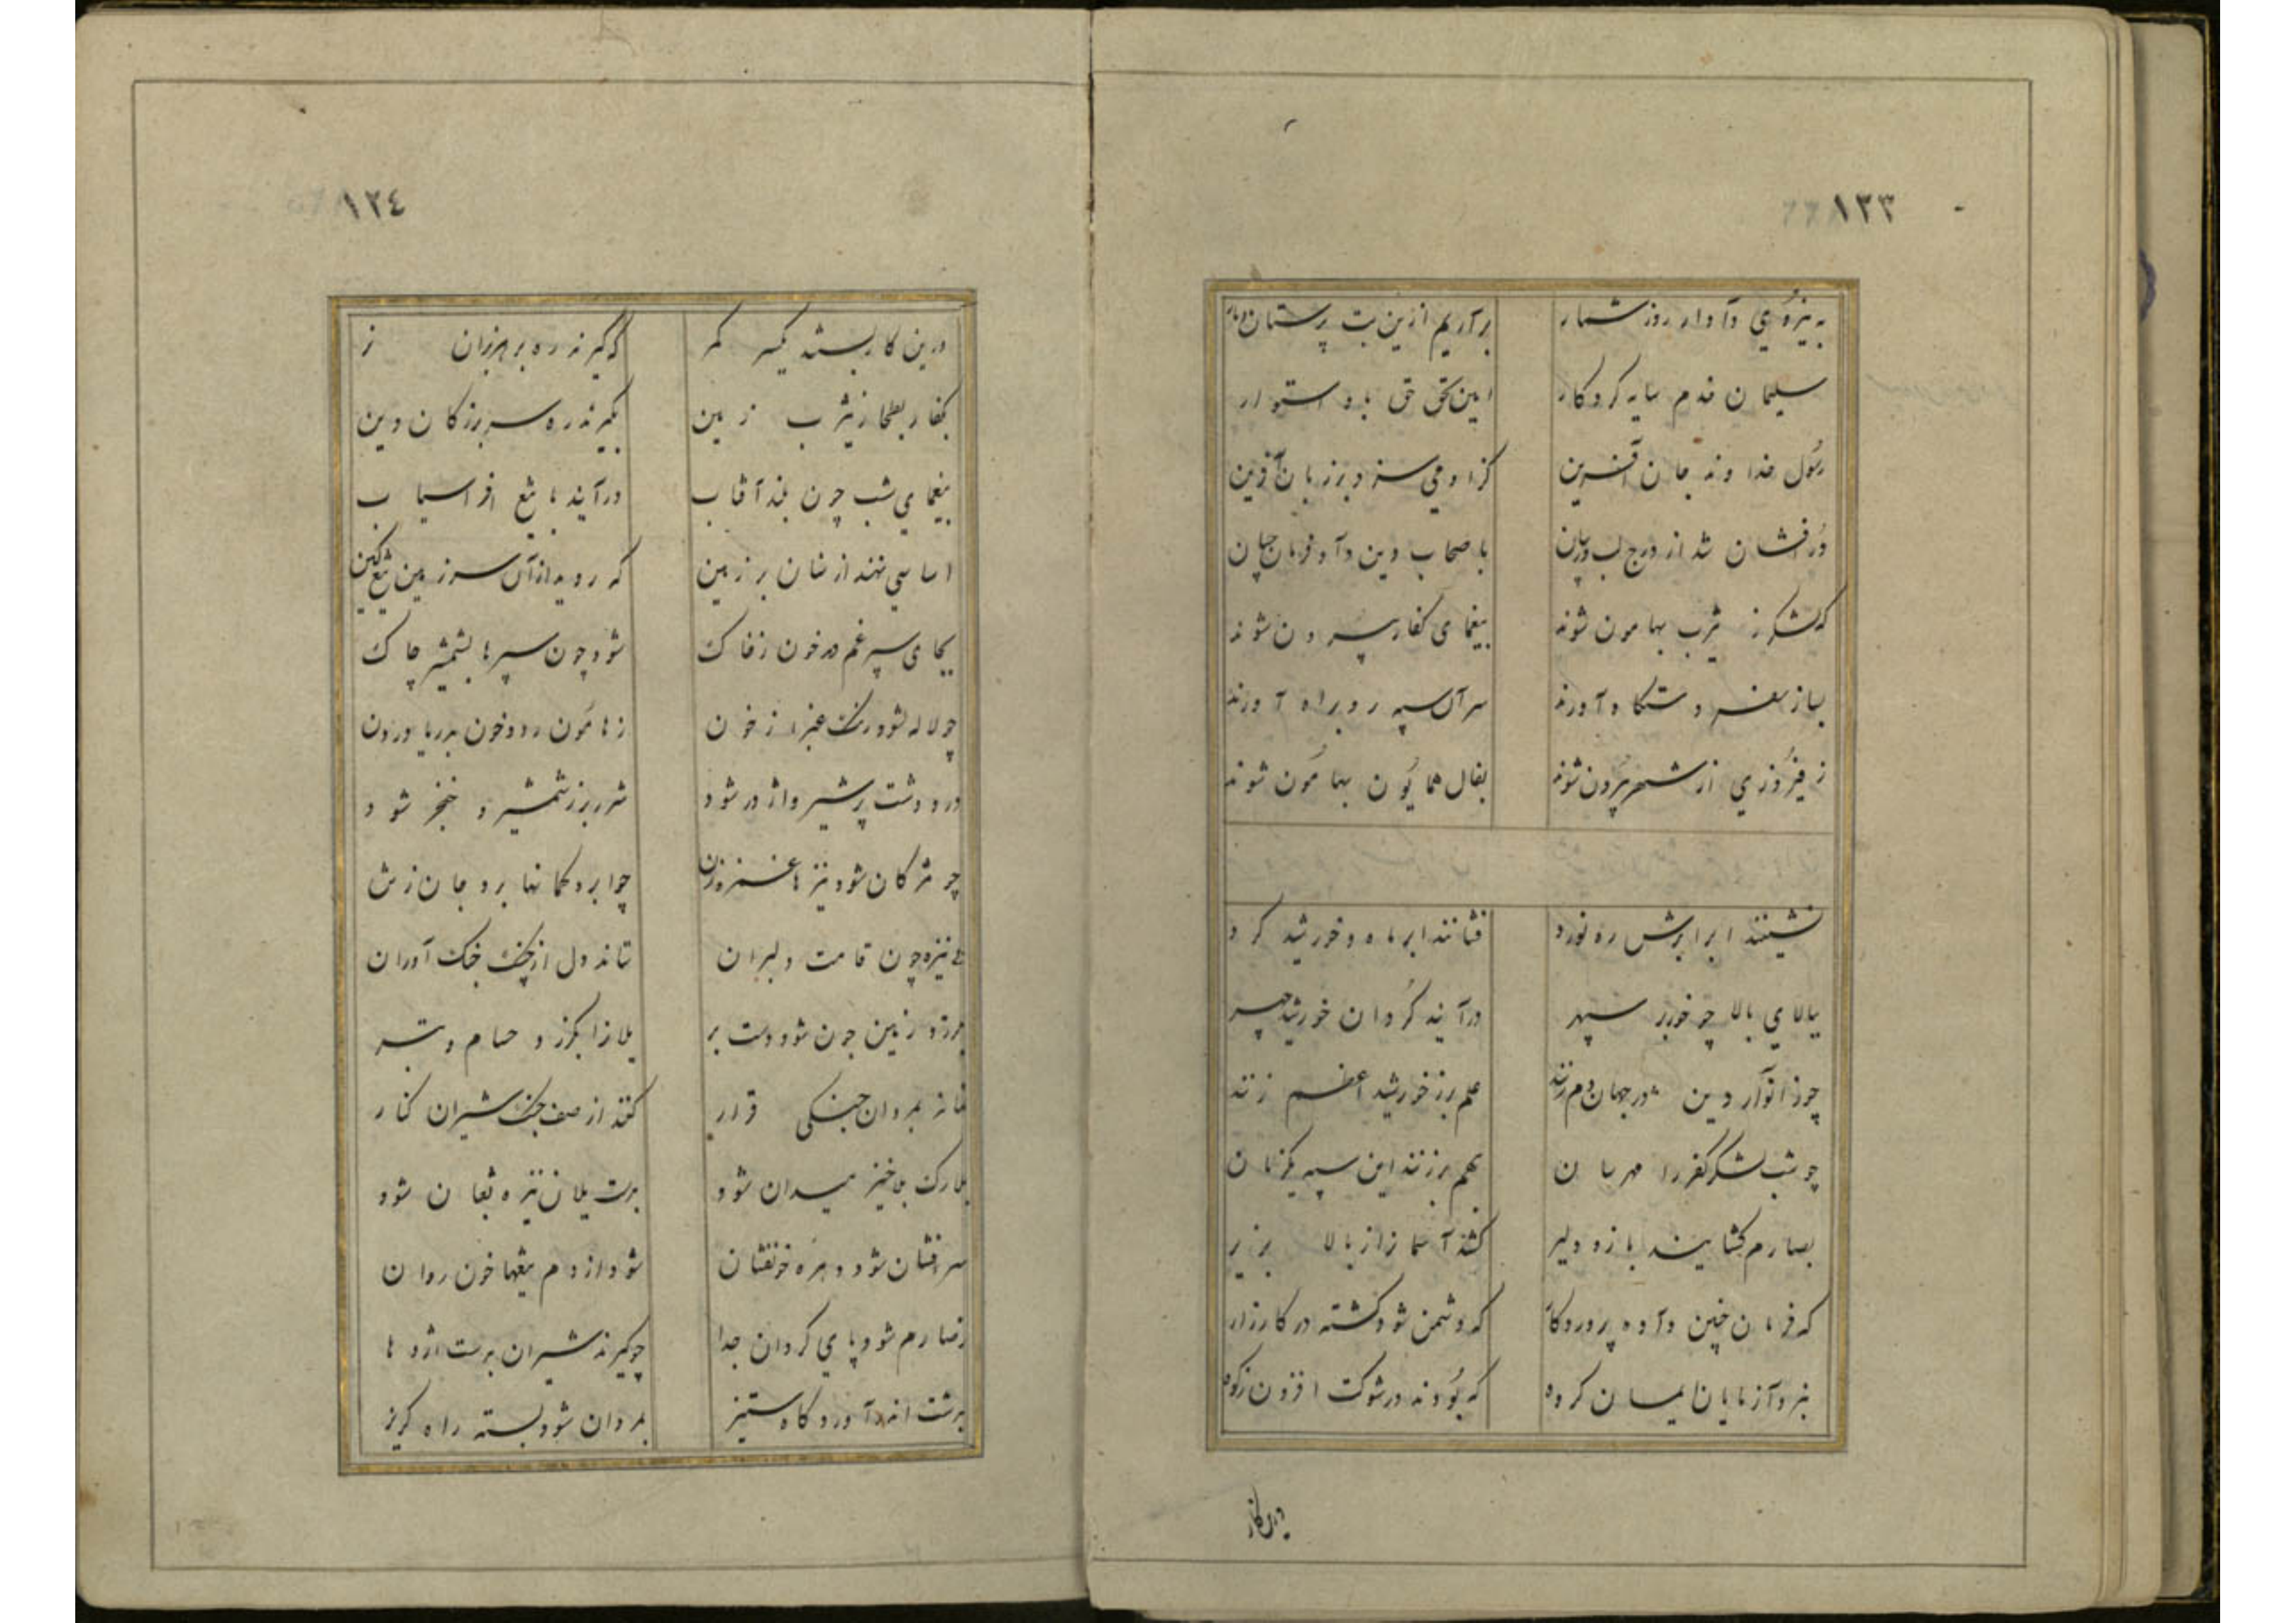 ١٢٣
به نیروی دادار روز شمار برآریم ازین بت پرستان دمار
سلیمان قدم سایه کردکار امین حق باو استوار
رسول خداوند جان آفرین کزو می سزد بر زبان آفرین
درافشان شد از درج لب باصحاب دین داد فرمان چنان
که لشکر ز یثرب بهامون شوند بیغمای کفار بیرون شوند
بساز سفر دستکاه آورند سرآن سپه رو براه آورند
ز فیروزی از شهر بیرون شوند بفال همایون بهامون شوند
نشستند ابر ابرش ره نورد فشانند ابر ماه و خورشید کرد
ببالای بالا چو خور بر سپهر درآیند کردان خورشید چهر
چو ز انوار دین در جهان دم زنند علم بر ز خورشید اعظم زنند
چو شب لشکر کفر را مهرسان بهم بر زنند این سپه یکزمان
بصارم کشایند بازو دلیر کشند آسمانرا ز بالا بزیر
که فرمان چنین داده پروردکار که دشمن شود کشته در کارزار
نبرد آزمایان ایمان کروه که بودند در شوکت افزون ز کوه
درین کار
١٢٤
درین کار بستند یکسر کمر که کیرند ره بر هزبران نر
بکفار بطحا ز یثرب زمین بکیرند ره سربزرکان دین
بیغمای شب چون بلند آفتاب درآیند با تیغ افراسیاب
اساسی نهند از سنان بر زمین که روید ازآن سرزمین تیغ کین
بجای سپرغم دمد خون ز خاک شود چون سپرها بشمشیر چاک
چو لاله شود رنک غبرا ز خون ز هامون رود خون بدریا درون
در و دشت پر شیر و اژدر شود شرر بر ز شمشیر و خنجر شود
چو مژکان شود نیزها چو ابرو کمانها برد جان ز تن
نیزه چون قامت دلبران ستاند دل از جنک آوران
بلرزد زمین چون شود دست بر یلانرا بکرز و حسام و تبر
نماند بمردان جنکی قرار کنند از صف جنک شیران کنار
بلارک بلاخیز میدان شود بدست یلان نیزه ثعبان شود
سرافشان شود دهره خونفشان شود از دم تیغها خون روان
ز صارم شود پای کردان جدا چو کیرند شیران بدست اژدها
بدشت اندر آوردکاه ستیز بمردان شود بسته راه کریز